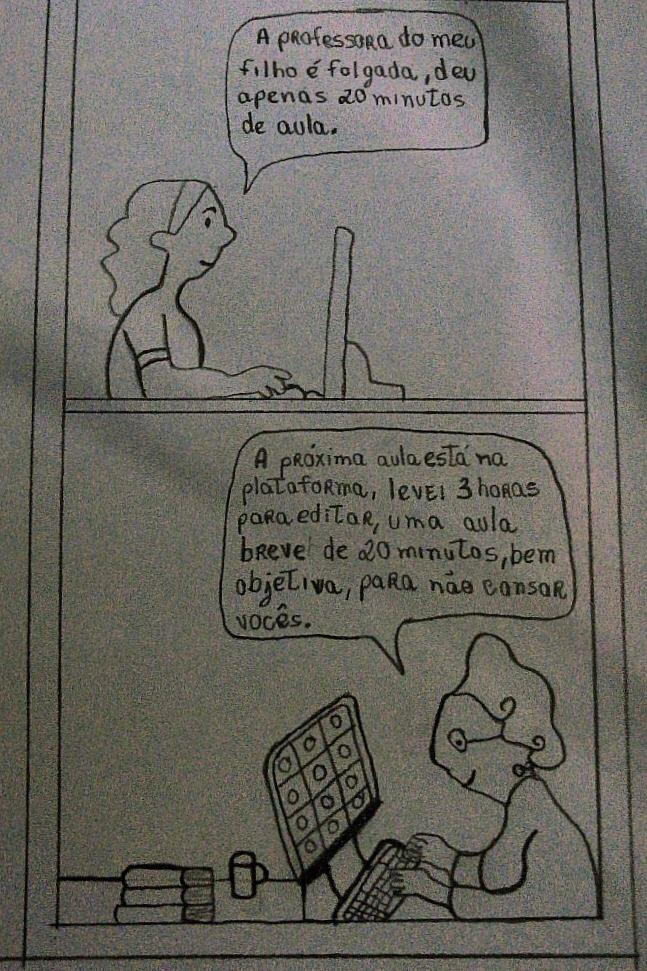 A professora do meu
filho é folgada, deu
apenas 20 minutos
de aula.
A próxima aula está na
plataforma, levei 3 horas
para editar, uma aula
breve de 20 minutos, bem
objetiva, para não cansar
vocês.